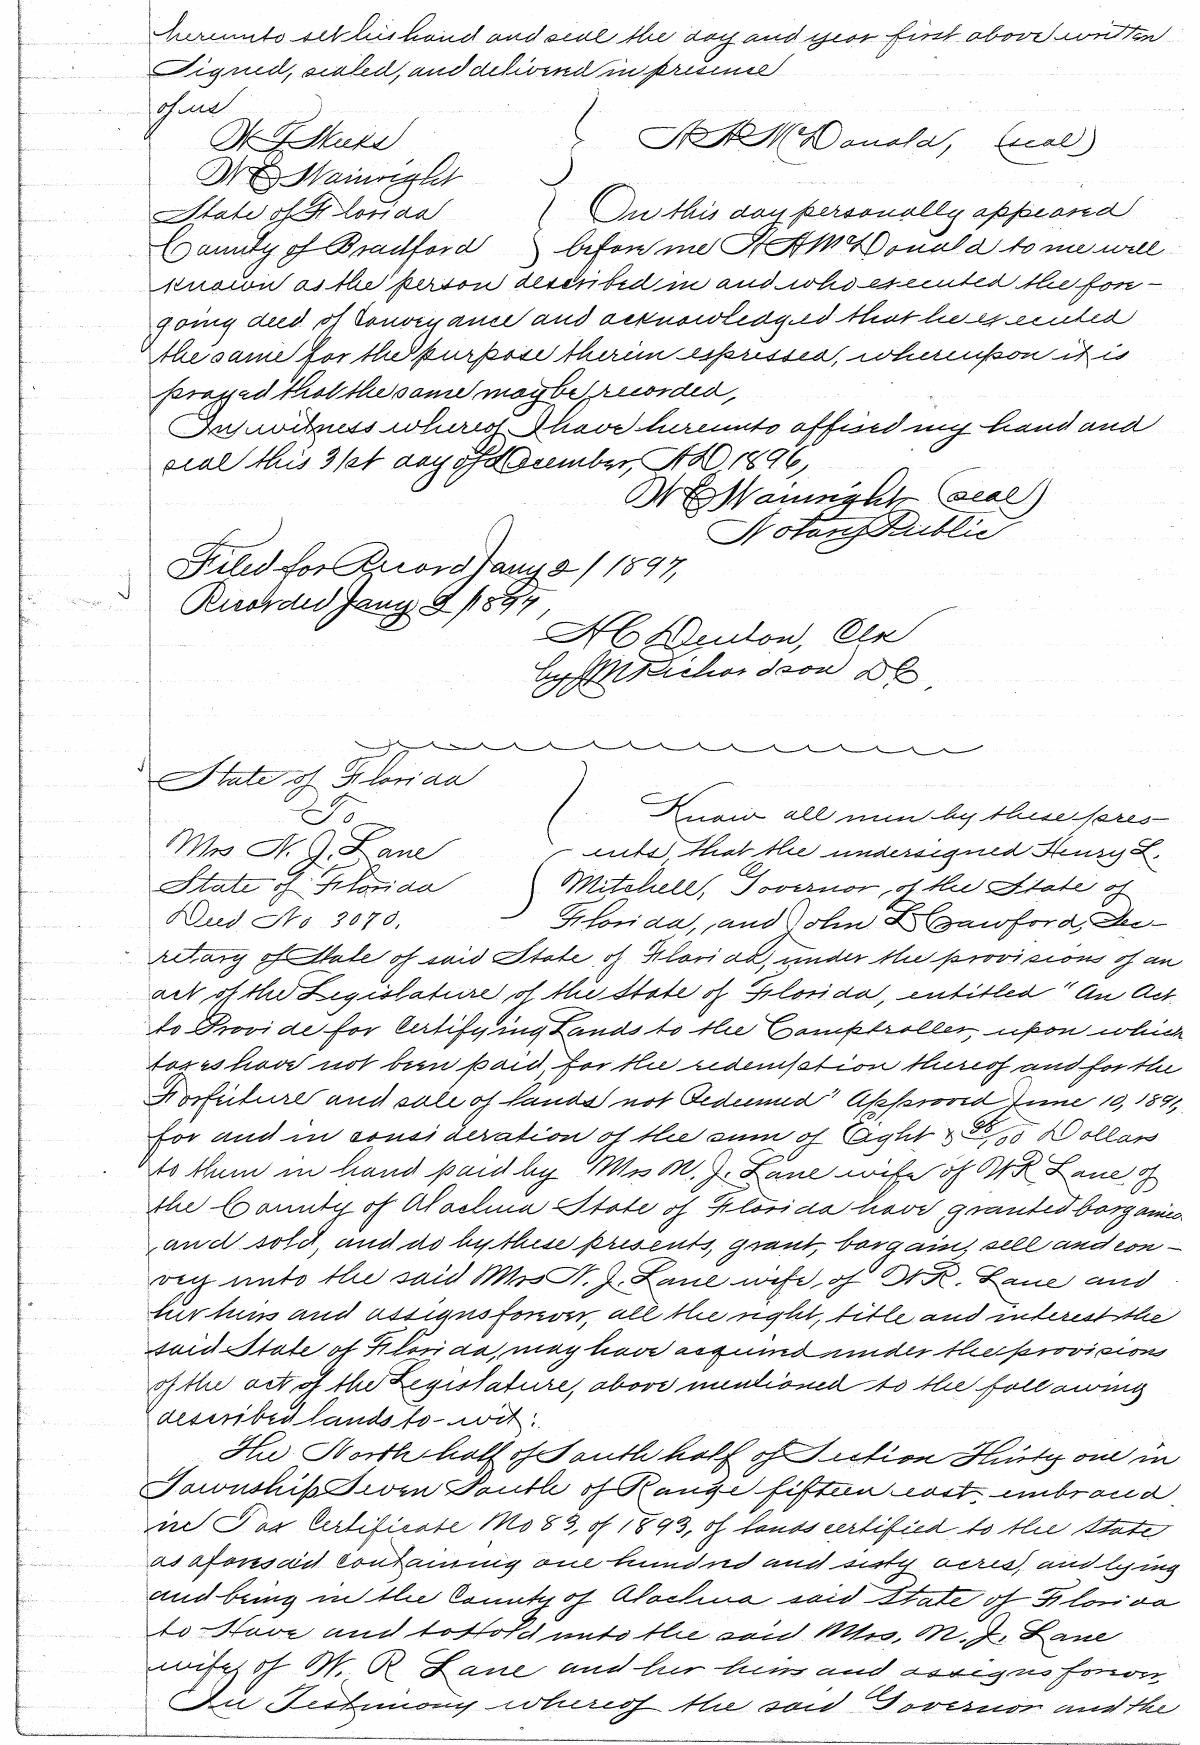 hereunto set his hand and seal the day and year first above written
Signed, sealed, and delivered in presence
of us
McDonald, (seal)
W E Wainright
State of Florida
On this day personally appeared
County of Bradford
before me McDonald to me well
known as the person described in and who executed the fore-
going deed of Conveyance and acknowledged that he executed
the same for the purpose therein expressed, whereupon it is
prayed that the same may be recorded,
In witness whereof I have hereunto affixed my hand and
seal this 31st day of December, AD, 1896,
W E Wainright (seal)
Notary Public
Filed for Record Jany 2/1897,
Recorded Jany 9/1897,
H C Denton, Clk
by J M Richardson D C.
State of Florida
To
Know all men by these pres-
Mrs N. J. Lane
ents, that the undersigned Henry L.
State of Florida
Mitchell, Governor of the State of
Deed No 3070.
Florida, and John L Crawford, Sec-
retary of State of said State of Florida, under the provisions of an
act of the Legislature of the State of Florida, entitled "An Act
to Provide for Certifying Lands to the Comptroller, upon which
taxes have not been paid, for the redemption thereof and for the
Forfeiture and sale of lands not Redeemed" Approved June 10, 1891,
for and in consideration of the sum of Eight & /00 Dollars
to them in hand paid by Mrs M. J. Lane wife of W R Lane of
the County of Alachua State of Florida have granted bargained
and sold, and do by these presents, grant, bargain, sell and con-
vey unto the said Mrs N. J. Lane wife of W R. Lane and
her heirs and assigns forever, all the right, title and interest the
said State of Florida, may have acquired under the provisions
of the act of the Legislature, above mentioned to the following
described lands to-wit:
The North half of South half of Section Thirty one in
Township Seven South of Range fifteen east, embraced
in Tax Certificate No 83, of 1893, of lands certified to the State
as aforesaid containing one hundred and sixty acres, and lying
and being in the County of Alachua said State of Florida
to Have and to Hold unto the said Mrs. M. J. Lane
wife of W. R Lane and her heirs and assigns forever,
In Testimony whereof the said Governor and the